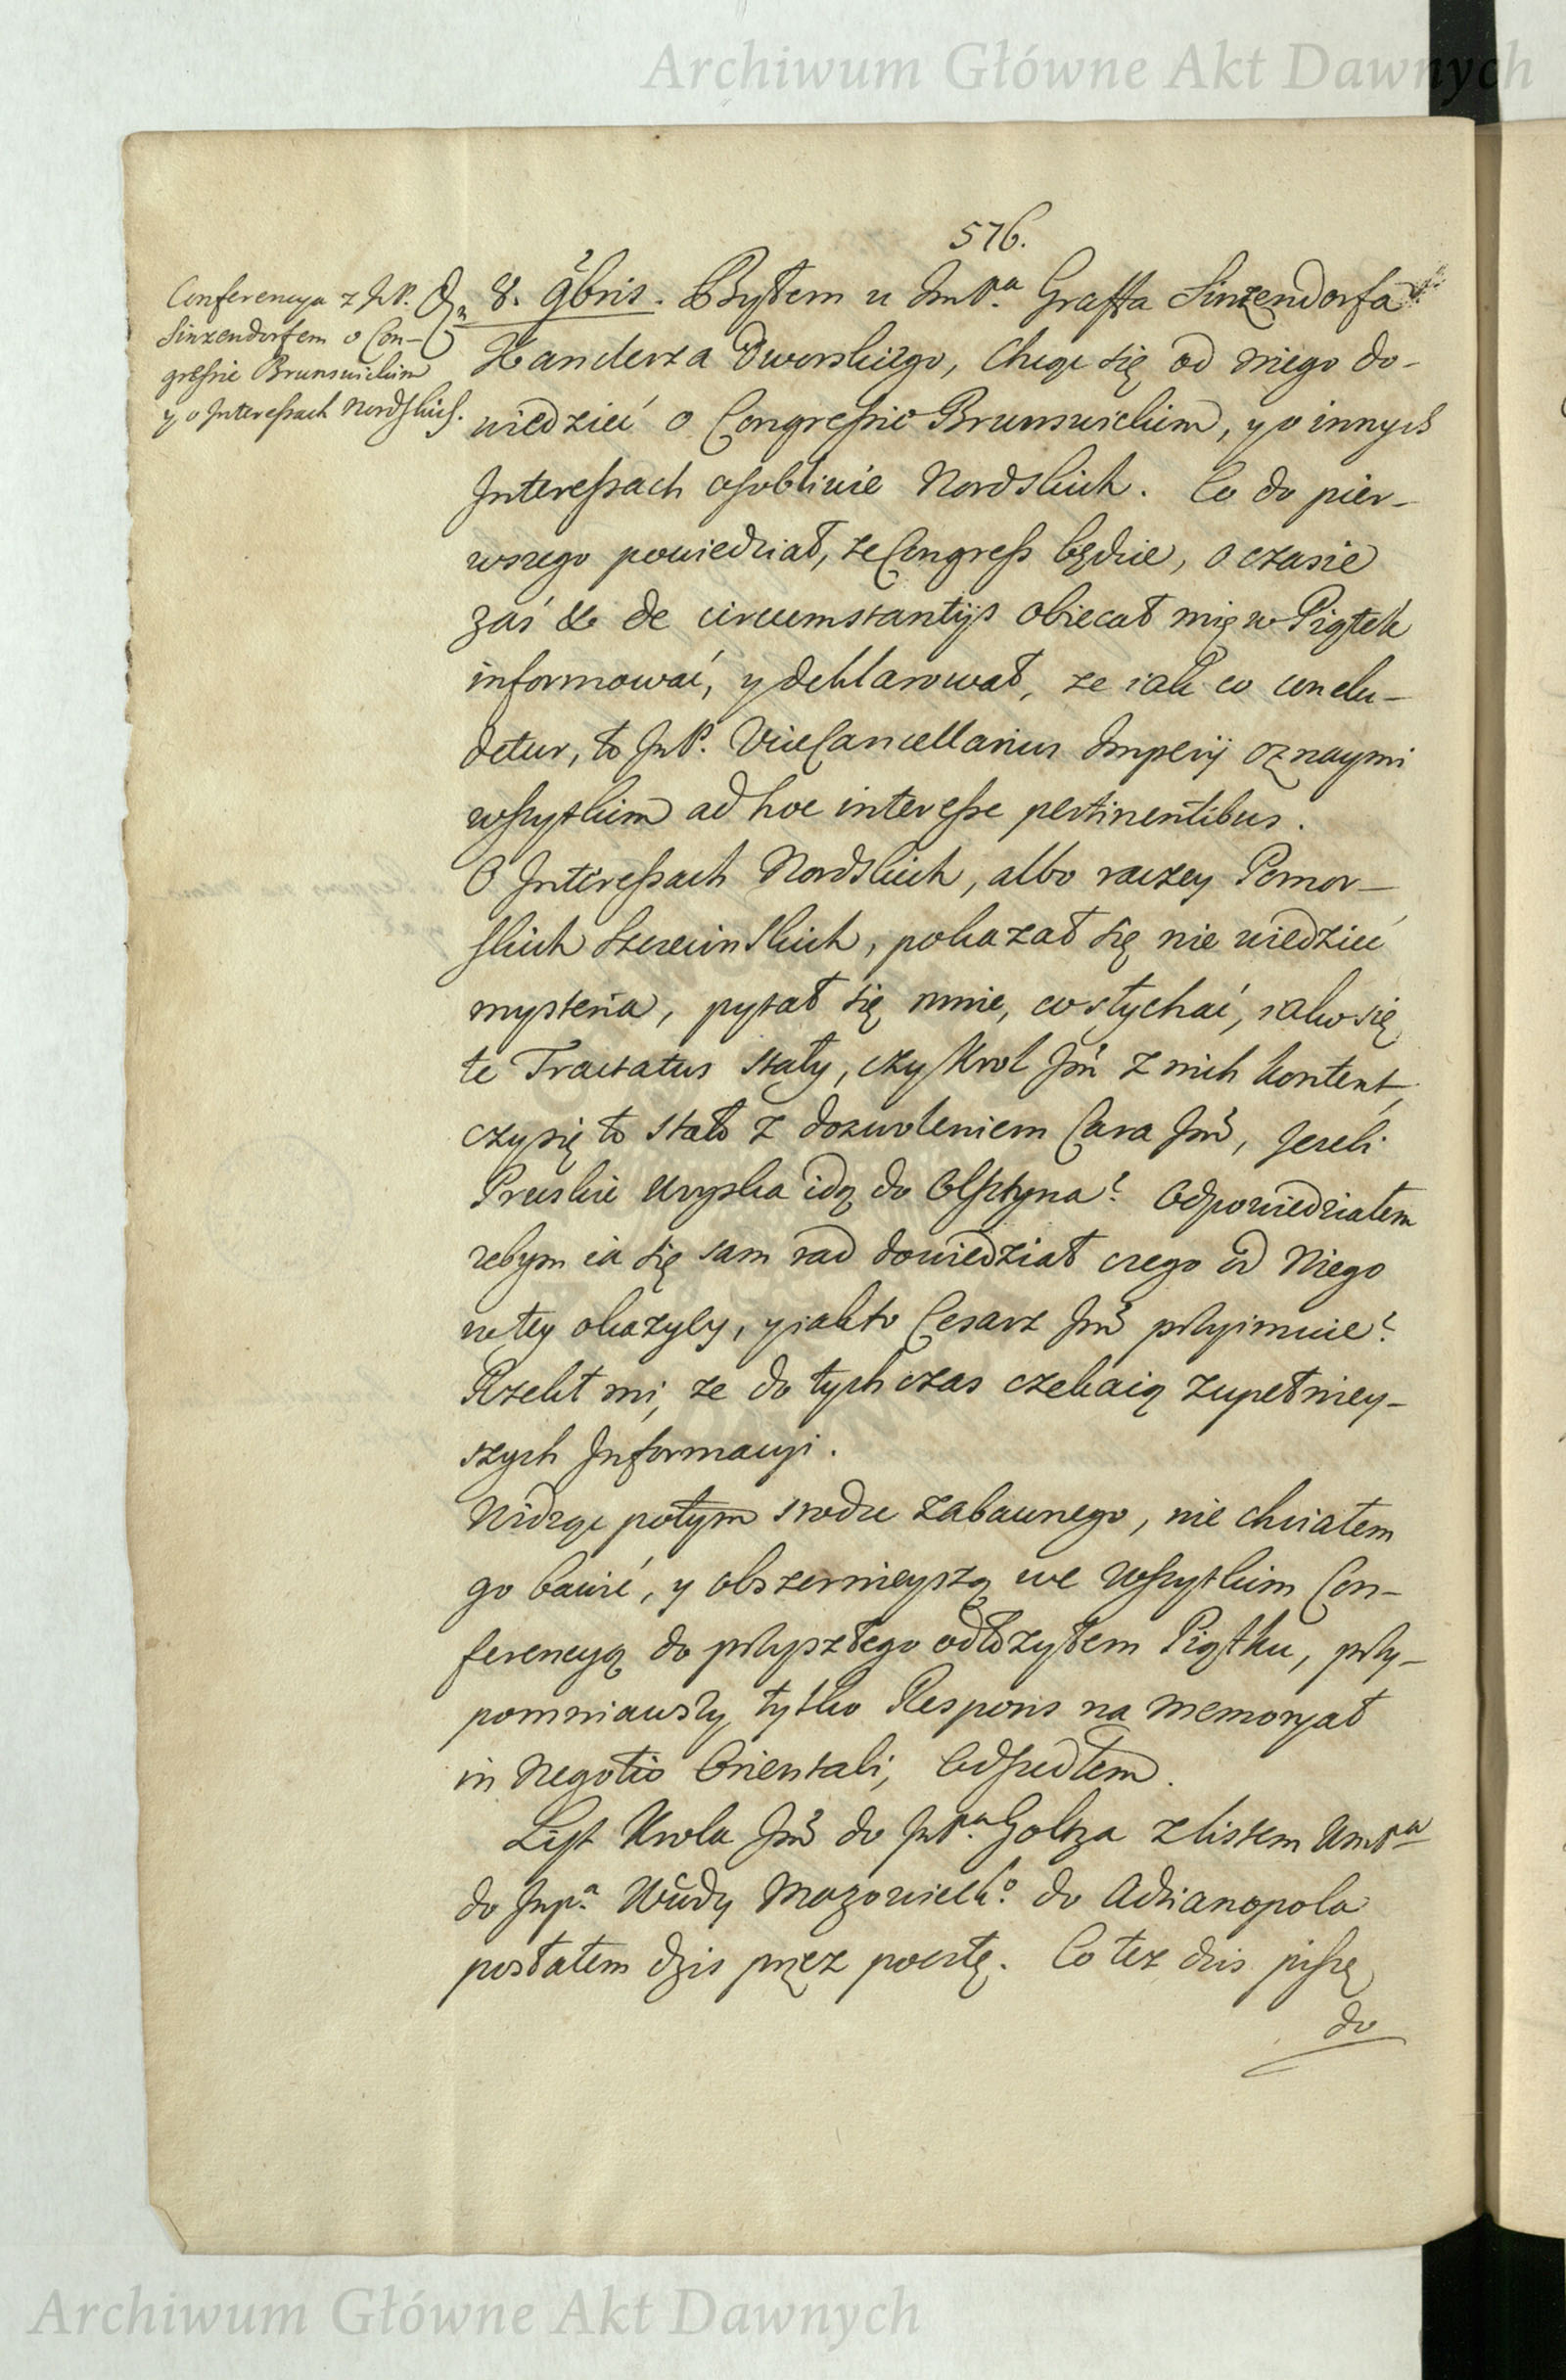 Archiwum Główne Akt Dawnych
576.
Conferencya z JmP.
Sinzendorfem o Con-
gressie Brunswickim
y o Interessach Nordskich.
8. 9bris. Byłem u JmP.a Graffa Sinzendorfa
Kanclerza Dworskiego, chcąc się od niego do-
wiedzieć o Congressie Brunswickim, y o innych
Interessach osobliwie Nordskich. Co do pier-
wszego powiedział, że Congress będzie, o czasie
zaś & de circumstantijs obiecał mię w Piątek
informować, y deklarował, że iak co conclu-
detur, to JmP. ViceCancellarius Imperij oznaymi
wszytkim ad hoc interesse pertinentibus.
O Interessach Nordskich, albo raczey Pomor-
skich Szczecinskich, pokazał się nie wiedzieć
mysteria, pytał się mnie, co słychać, iako się
te Tractatus stały, czy Krol Jmć z nich kontent,
czy się to stało z dozwoleniem Cara Jmć, Jezeli
Pruskie woyska idą do Olsztyna? Odpowiedziałem
żebym ia się sam rad dowiedział czego od Niego
w tey okazyey, y iak to Cesarz Jmć przyimuie?
Rzekł mi, że do tych czas czekaią zupełniey-
szych Informacyi.
Widząc potym srodze zabawnego, nie chciałem
go bawić, y obszernieyszą we wszytkim Con-
ferencyą do przyszłego odłożyłem Piątku, przy-
pomniawszy tylko Respons na memoryał
in Negotio Orientali, Odszedłem.
List Krola Jmć do JmP.a Goltza z listem JmPa
do Jmp.a Wdy Mazowieck.o do Adrianopola
posłałem dzis przez pocztę. Co tez dzis piszę
do
Archiwum Główne Akt Dawnych